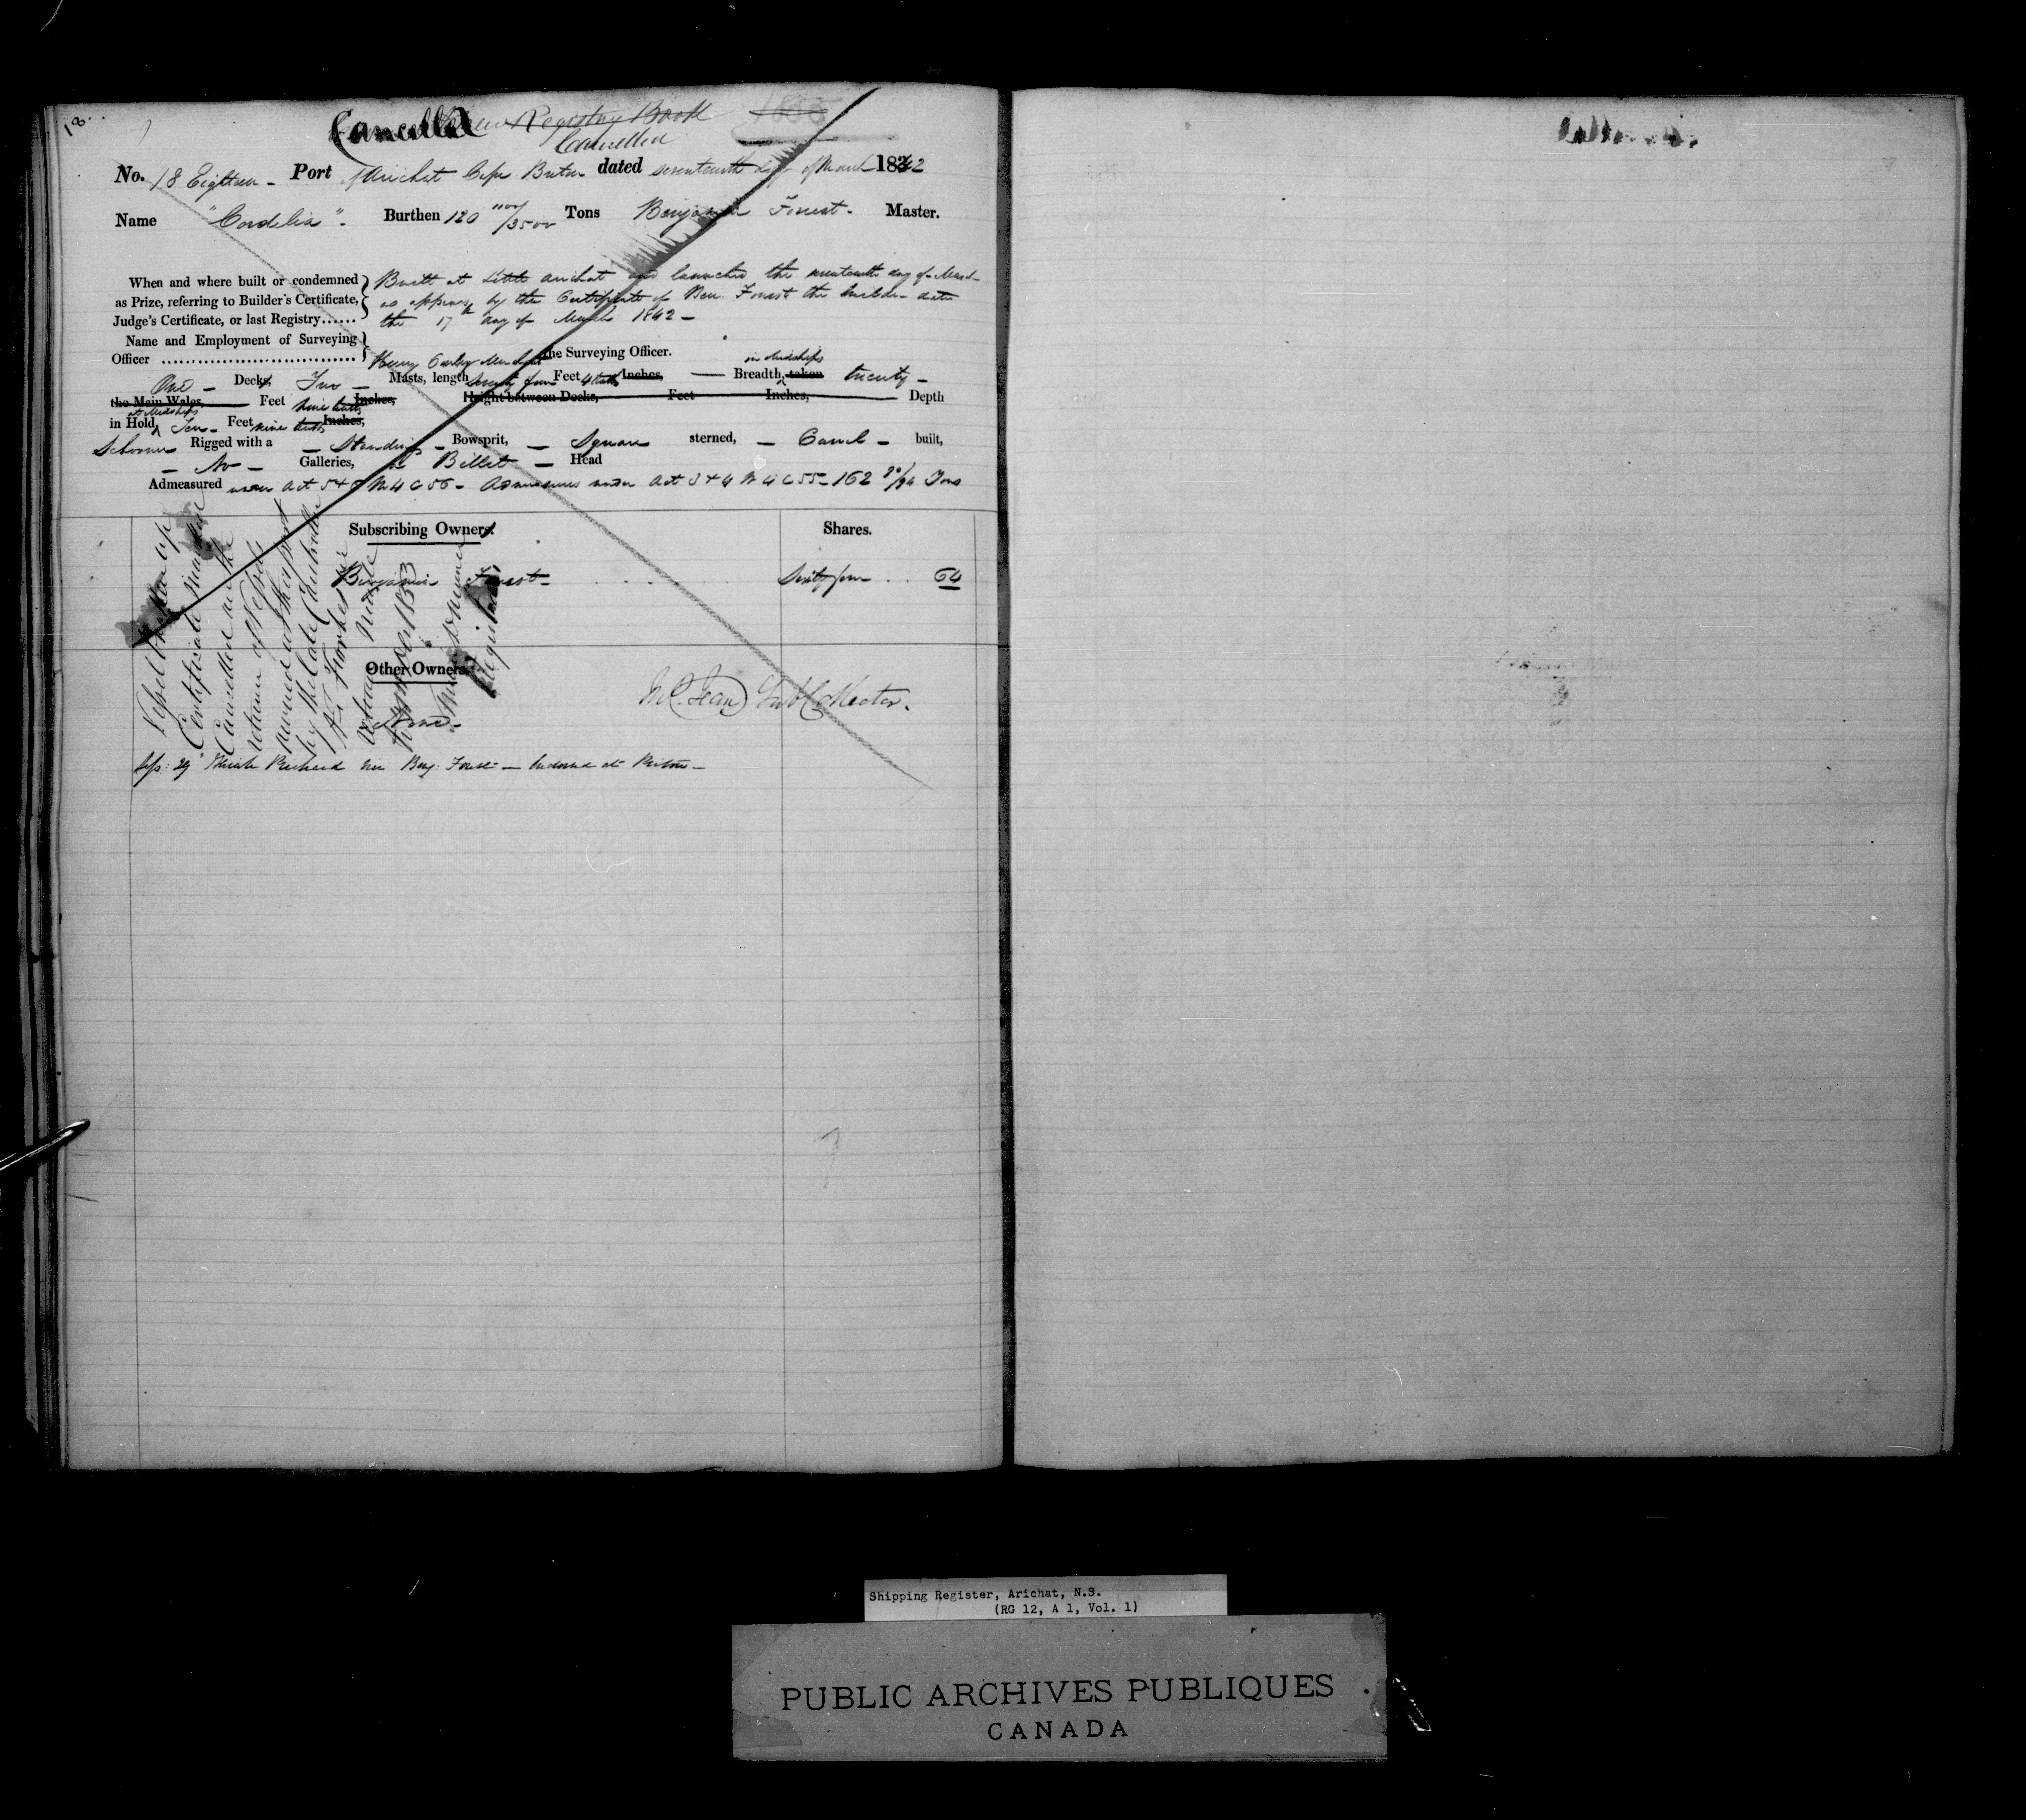 18.
Cancelled New Registry Book
Cancelled
No. 18 Eighteen - Port of Arichat Cape Breton dated seventeenth day of March 1842
Name "Cordelia" - Burthen 120 1100/3500 Tons Benjamin Forest - Master.
When and where built or condemned as Prize, referring to Builder's Certificate, Judge's Certificate, or last Registry......
Built at Little Arichat and launched the seventeenth day of March
as appears by the Certificate of Ben. Forest the builder date
the 17th day of March 1842 -
Name and Employment of Surveying
Officer ................................ Henry the Surveying Officer.
in Midships
One - Decks, Two - Masts, length seventy four Feet 4 tenths Inches, — Breadth, taken twenty -
the Main Wales, Feet nine tenths Inches, Height between Decks, Feet Inches, Depth
at Midships
in Hold, Ten - Feet nine tenths Inches,
Schooner Rigged with a - Standing - Bowsprit, - Square sterned, - Carvel - built,
- No - Galleries, a Billet - Head
Admeasured under Act 5 & 6 W 4 C 56 - Admeasures under Act 3 & 4 W 4 C 55 - 162 Tons
Subscribing Owners. Shares.
Benjamin Forest - Sixty four .. 64
Other Owners.
None -
Sub Collector.
Vessel broken up
Certificate
Cancelled
return of Vessels
owned in this port
by the late Controller
1853
Registrar
29 Richard Ben Forest -
7
Shipping Register, Arichat, N.S.
(RG 12, A 1, Vol. 1)
PUBLIC ARCHIVES PUBLIQUES
CANADA